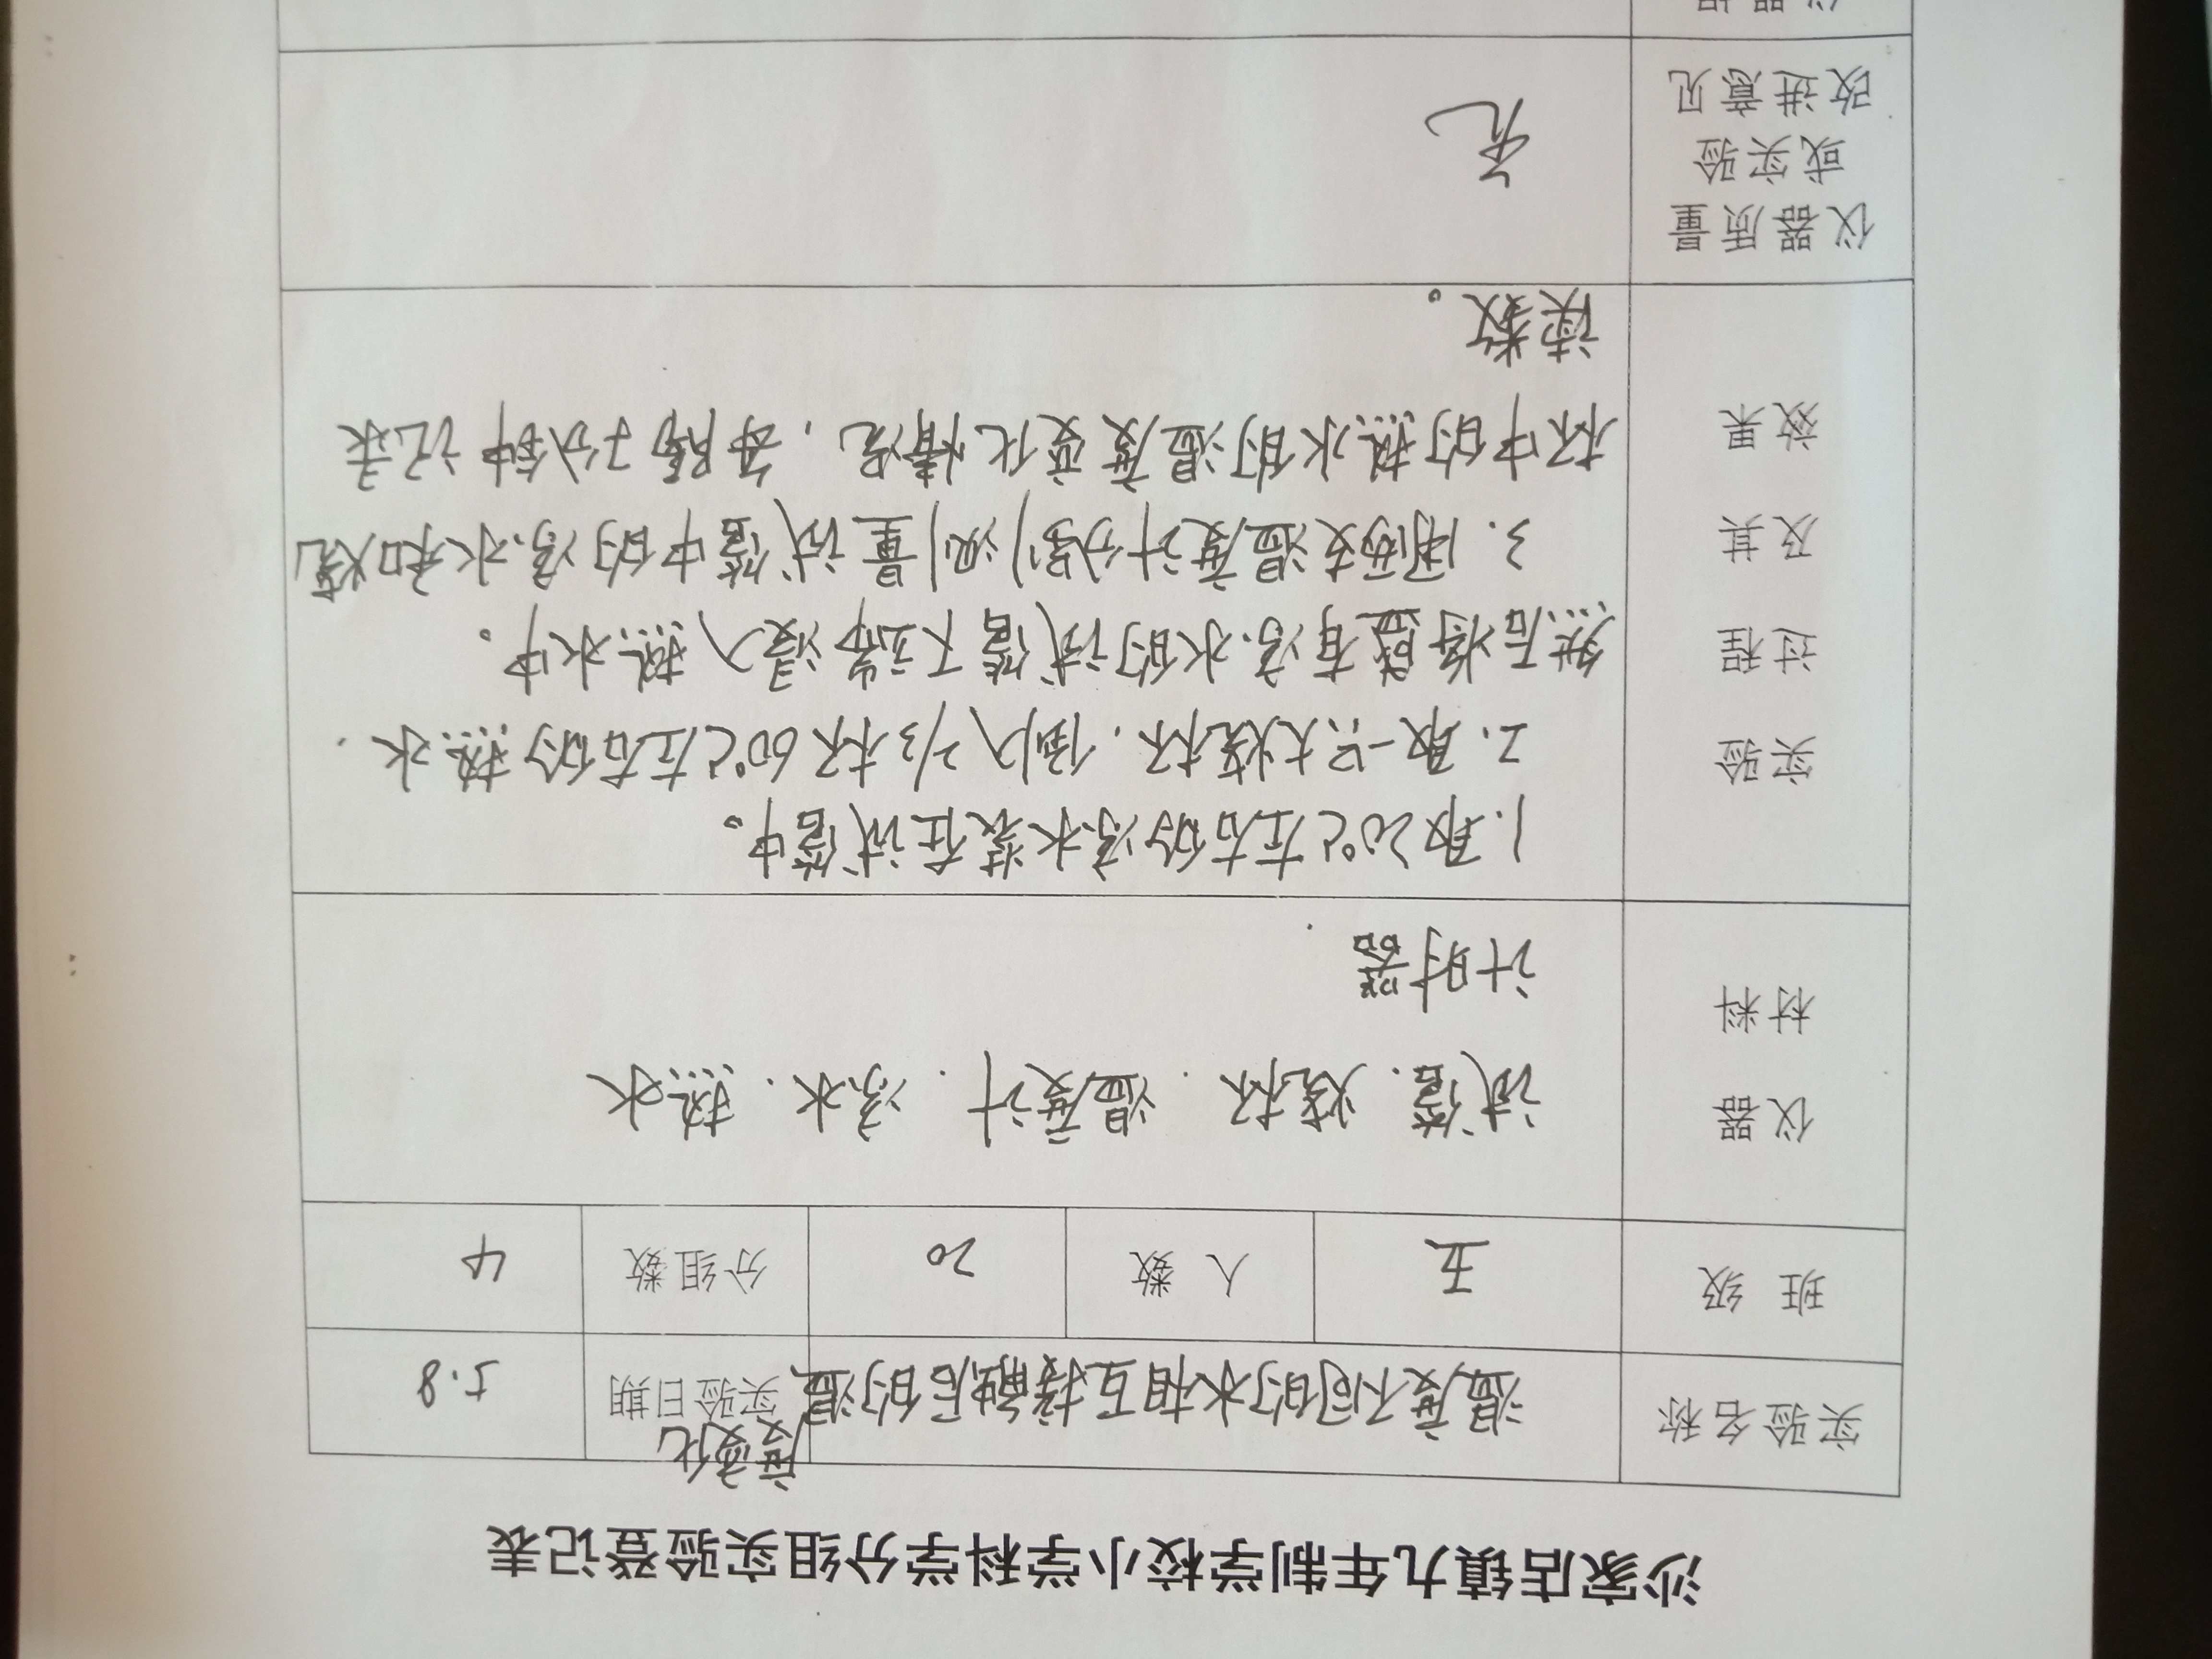 沙家店镇九年制学校小学科学分组实验登记表
实验名称 温度不同的水相互接触后的温度变化 实验日期 5.8
班 级 五 人 数 20 分组数 4
仪器材料
试管. 烧杯. 温度计. 凉水. 热水
计时器.
实验过程及其效果
1.取20℃左右的凉水装在试管中。
2.取一只大烧杯.倒入2/3杯60℃左右的热水.
然后将盛有凉水的试管下端浸入热水中。
3.用两支温度计分别测量试管中的凉水和烧
杯中的热水的温度变化情况,每隔1分钟记录
读数。
仪器质量或实验改进意见
无